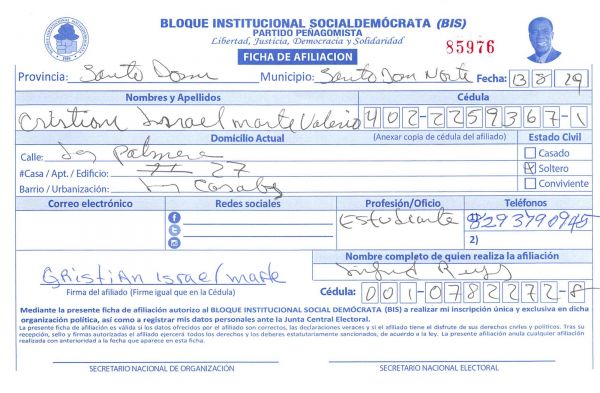 BLOQUE INSTITUCIONAL SOCIALDEMÓCRATA (BIS)
PARTIDO PEÑAGOMISTA
Libertad, Justicia, Democracia y Solidaridad
85976
FICHA DE AFILIACION
Provincia: Santo Dom Municipio: Santo Dom Norte Fecha: 13 8 29
Nombres y Apellidos Cédula
Cristian Israel marte Valerio 402-2259367-1
Domicilio Actual (Anexar copia de cédula del afiliado) Estado Civil
Calle: Palmera Casado
#Casa / Apt. / Edificio: 27 Soltero
Barrio / Urbanización: Conviviente
Correo electrónico Redes sociales Profesión/Oficio Teléfonos
Estudiante 8293790945
2)
Nombre completo de quien realiza la afiliación
Cristian Israel marte
Firma del afiliado (Firme igual que en la Cédula) Cédula: 001-0782272-8
Mediante la presente ficha de afiliación autorizo al BLOQUE INSTITUCIONAL SOCIAL DEMÓCRATA (BIS) a realizar mi inscripción única y exclusiva en dicha
organización política, así como a registrar mis datos personales ante la Junta Central Electoral.
La presente ficha de afiliación es válida si los datos ofrecidos por el afiliado son correctos, las declaraciones veraces y si el afiliado tiene el disfrute de sus derechos civiles y políticos. Tras su
recepción, sello y firmas autorizadas el afiliado ejercerá todos los derechos y los deberes estatutariamente sancionados, de acuerdo a la ley. La presente afiliación anula cualquier afiliación
realizada con anterioridad a la fecha que aparece en esta ficha.
SECRETARIO NACIONAL DE ORGANIZACIÓN SECRETARIO NACIONAL ELECTORAL